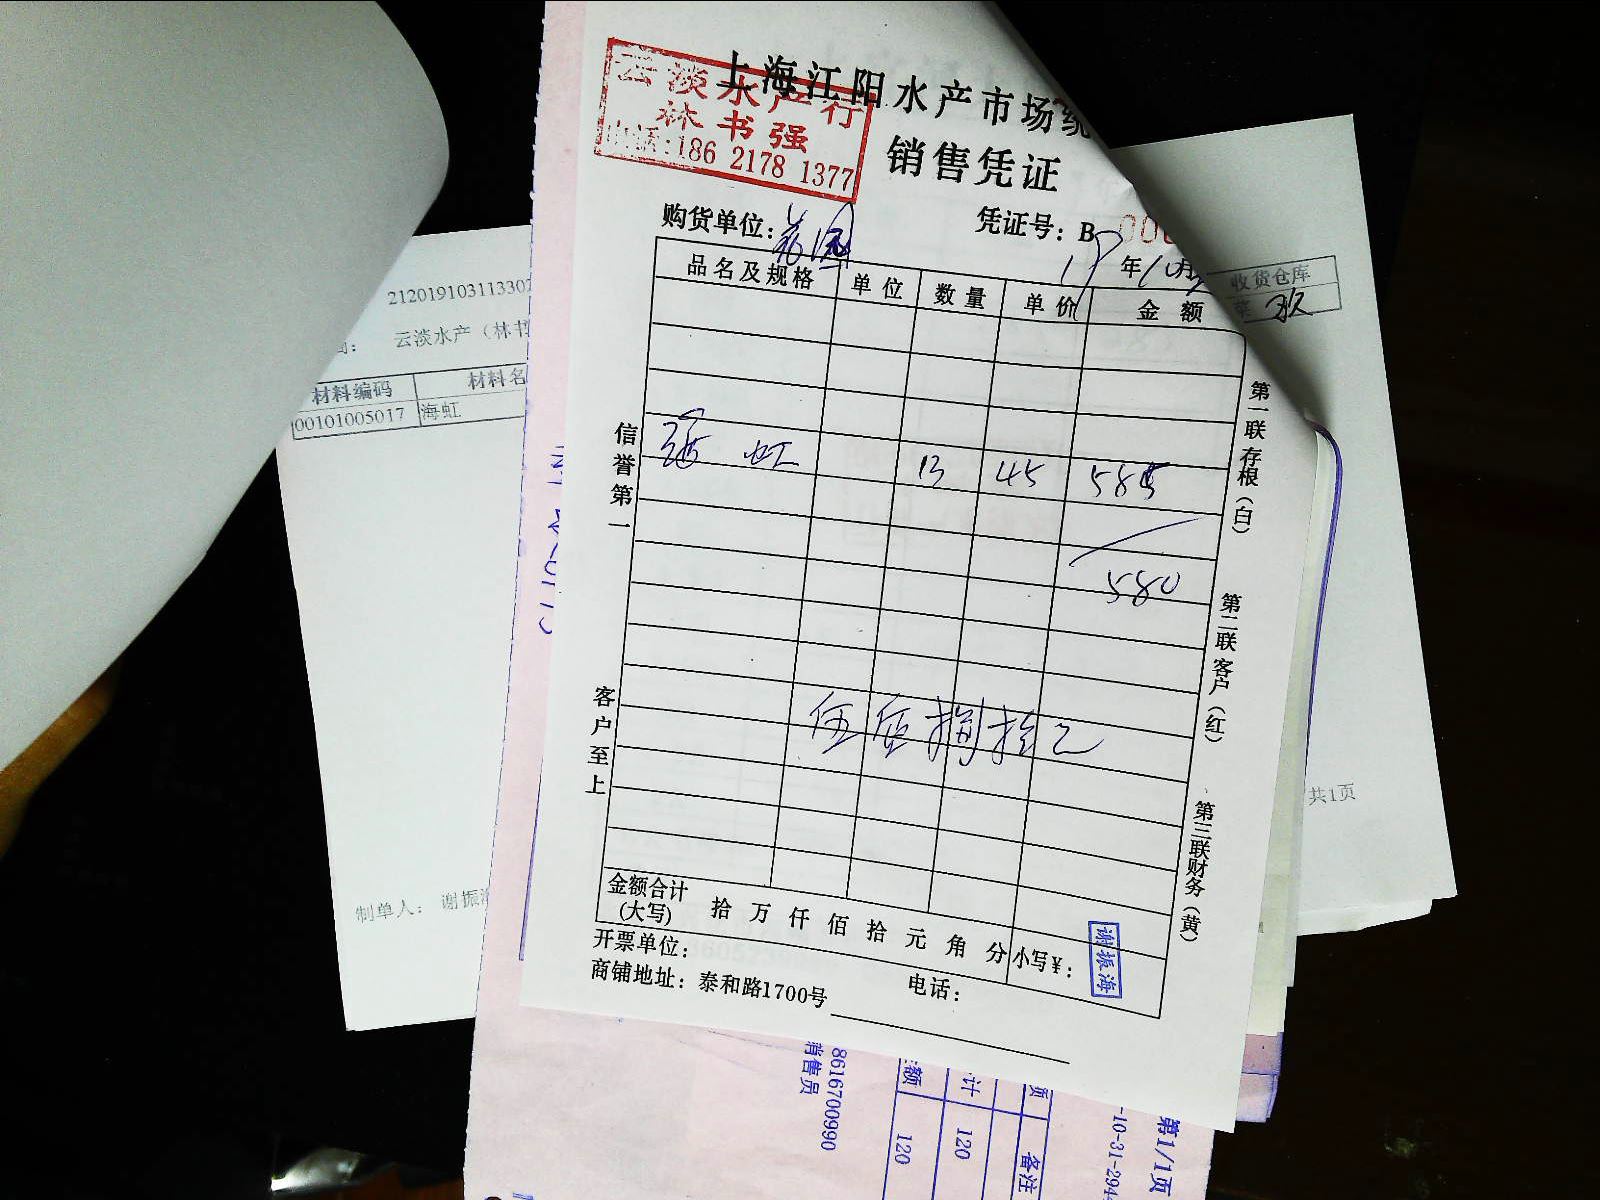 云淡水产行
林书强
电话:186 2178 1377
上海江阳水产市场统
销售凭证
购货单位:
凭证号: B 000
19年10月
品名及规格 单位 数量 单价 金额
海虹 13 45 585
580
伍佰捌拾元
信誉第一
客户至上
第一联存根(白)
第二联客户(红)
第三联财务(黄)
金额合计
(大写) 拾 万 仟 佰 拾 元 角 分 小写¥:
谢振海
开票单位:
电话:
商铺地址: 泰和路1700号
212019103113302
云淡水产(林书
材料编码 材料名
00101005017 海虹
制单人: 谢振海
收货仓库
共1页
8616700990
销售员
额 120
计 120
备注
-10-31-294
第1/1页